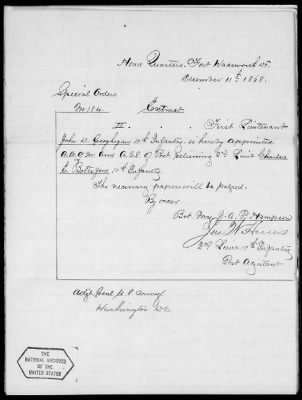 Head Quarters, Fort Wadsworth DT.
December 11th 1868.
Special Orders
No 184. Extract
II. First Lieutenant
John D. Geoghegan 10th Infantry is hereby appointed
a.a.q.m. and A.C.S. of Post relieving 2nd Lieut Charles
E. 10th Infantry
The necessary papers will be
By order
Bvt Maj J. A. P. Hampson
Jas W.
2nd Lieut 10th Infantry
Post Adjutant
Adjt Genl U.S. Army
Washington D.C.
THE
NATIONAL ARCHIVES
OF THE
UNITED STATES